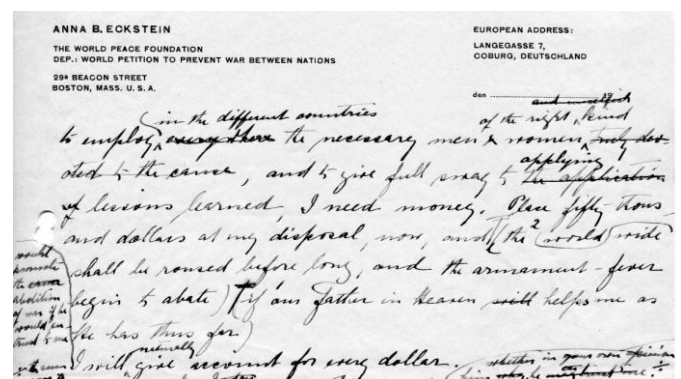 ANNA B. ECKSTEIN
THE WORLD PEACE FOUNDATION
DEP.: WORLD PETITION TO PREVENT WAR BETWEEN NATIONS
29A BEACON STREET
BOSTON, MASS. U. S. A.
EUROPEAN ADDRESS:
LANGEGASSE 7,
COBURG, DEUTSCHLAND
den 19
in the different countries and unselfish
of the right kind
to employ every where the necessary men & women truly dev-
applying
oted to the cause, and to give full sway to the application
of lessons learned, I need money. Place fifty thous-
and dollars at my disposal, now, and (the 2 (world) wide
shall be roused before long, and the armament-fever
begin to abate) (if our Father in Heaven will helps me as
He has thus far)
naturally
I will give account for every dollar.
whether in your own opinion
would
promote
the cause
abolition
of war if he
would en-
trust to me